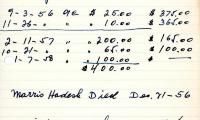 9-3-56 98 $ 25.00 $ 375.00
11-26- " " 10.00 $ 365.00
2-11-57 " " 200.00 $ 165.00
10-21- " " 65.00 $ 100.00
1-7-58 " 100.00
$ 400.00
Morris Hadesh Died Dec. 21-56